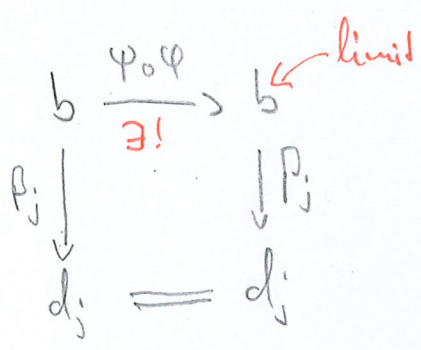 limit
ψ∘φ
b b
∃!
p_j p_j
d_j d_j